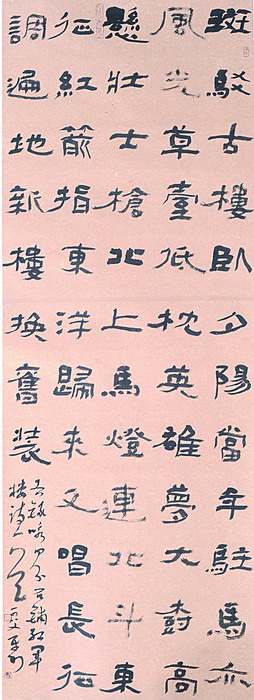 斑駁古樓臥夕陽當年駐馬亦
風光草臺低枕英雄夢大樹高
懸壯士槍北上馬燈連北斗東
征紅箭指東洋歸來又唱長征
調遍地新樓換舊裝
紅軍
樓詩一